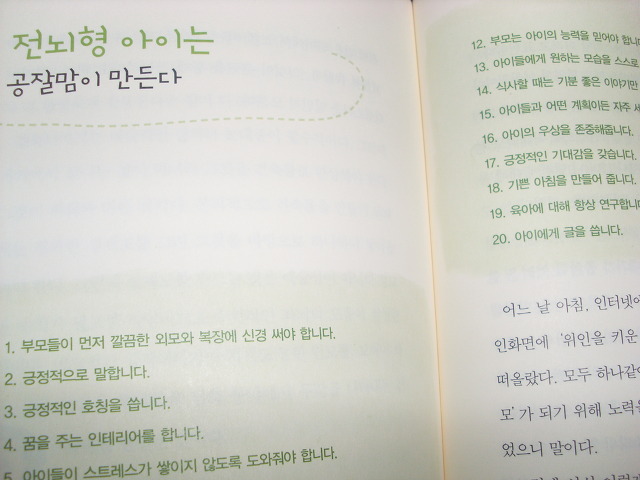 전뇌형 아이는
공잘맘이 만든다
1. 부모들이 먼저 깔끔한 외모와 복장에 신경 써야 합니다.
2. 긍정적으로 말합니다.
3. 긍정적인 호칭을 씁니다.
4. 꿈을 주는 인테리어를 합니다.
5. 아이들이 스트레스가 쌓이지 않도록 도와줘야 합니다.
12. 부모는 아이의 능력을 믿어야 합니
13. 아이들에게 원하는 모습을 스스로
14. 식사할 때는 기분 좋은 이야기만
15. 아이들과 어떤 계획이든 자주 세
16. 아이의 우상을 존중해줍니다.
17. 긍정적인 기대감을 갖습니다.
18. 기쁜 아침을 만들어 줍니다.
19. 육아에 대해 항상 연구합니
20. 아이에게 글을 씁니다.
어느 날 아침, 인터넷에
인화면에 '위인을 키운
떠올랐다. 모두 하나같이
모'가 되기 위해 노력을
었으니 말이다.